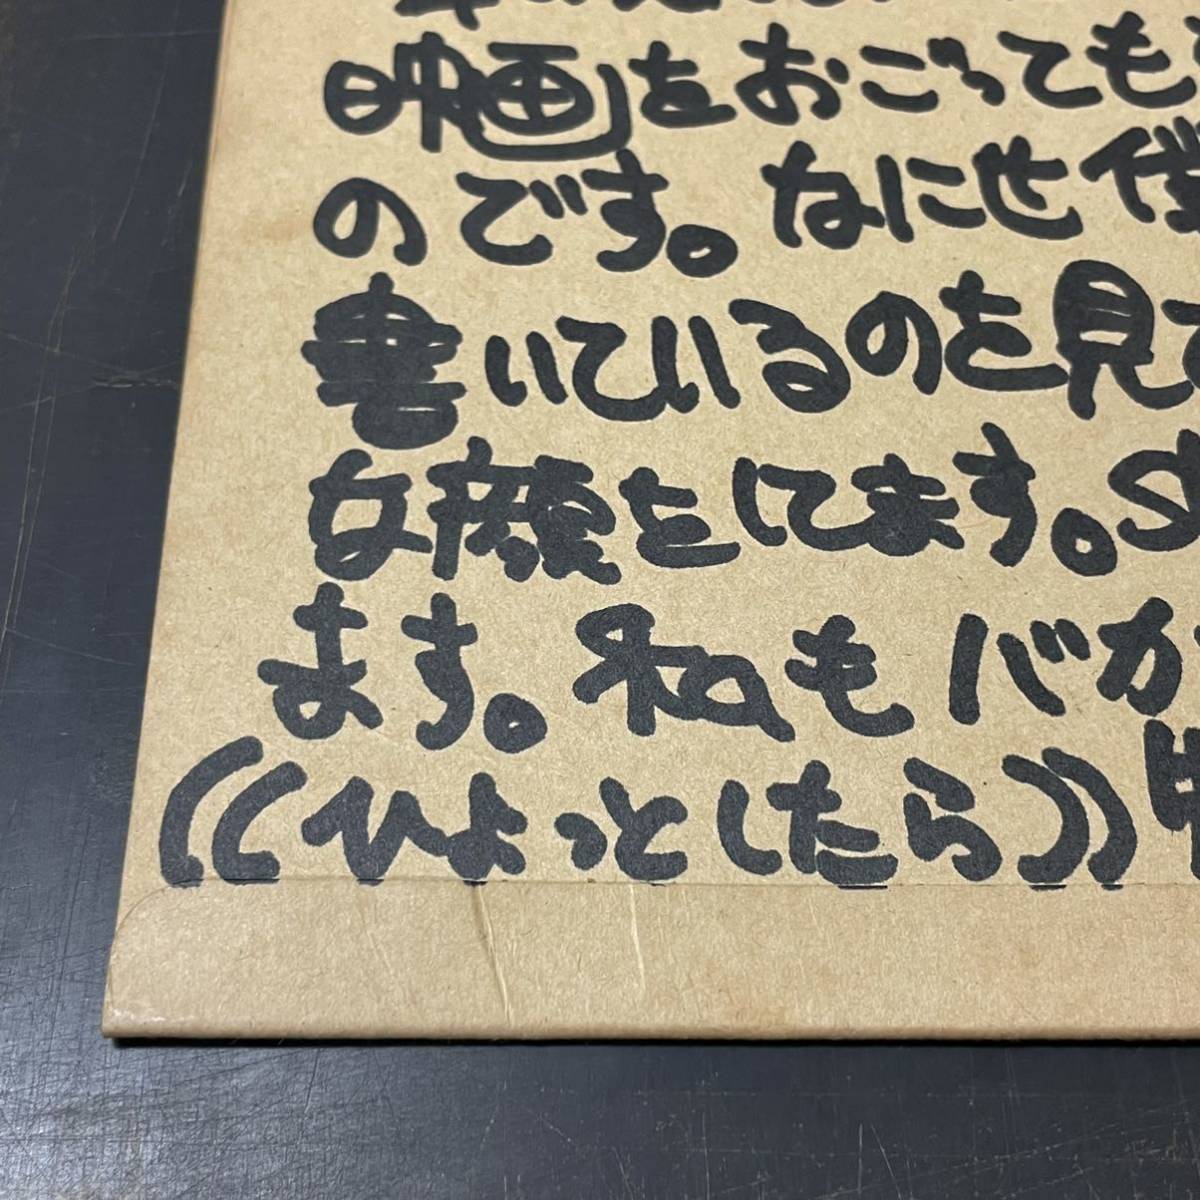 映画をおごっても
のです。なにせ僕
書いているのを見
な顔をにてます。
ます。私もバカ
((ひょっとしたら))